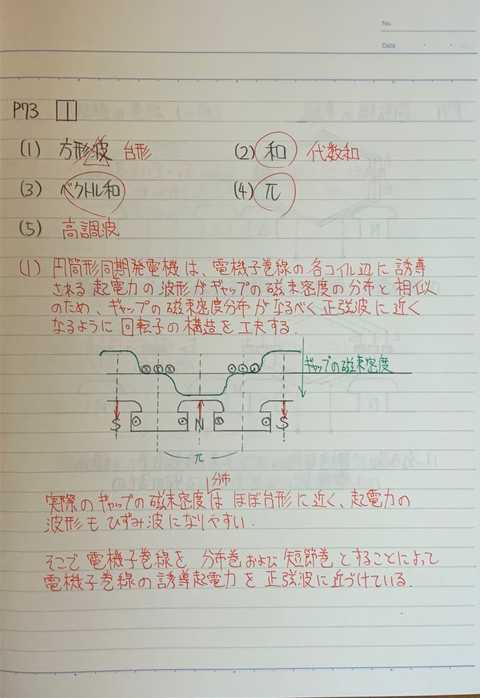 No.
Date
P73 1
(1) 方形波 台形 (2) 和 代数和
(3) ベクトル和 (4) π
(5) 高調波
(1) 円筒形同期発電機は、電機子巻線の各コイル辺に誘導
される起電力の波形がギャップの磁束密度の分布と相似
のため、ギャップの磁束密度分布がなるべく正弦波に近く
なるように回転子の構造を工夫する.
ギャップの磁束密度
S N S
π
分布
実際のギャップの磁束密度は ほぼ台形に近く、起電力の
波形もひずみ波になりやすい.
そこで電機子巻線を分布巻および短節巻とすることによって
電機子巻線の誘導起電力を正弦波に近づけている.